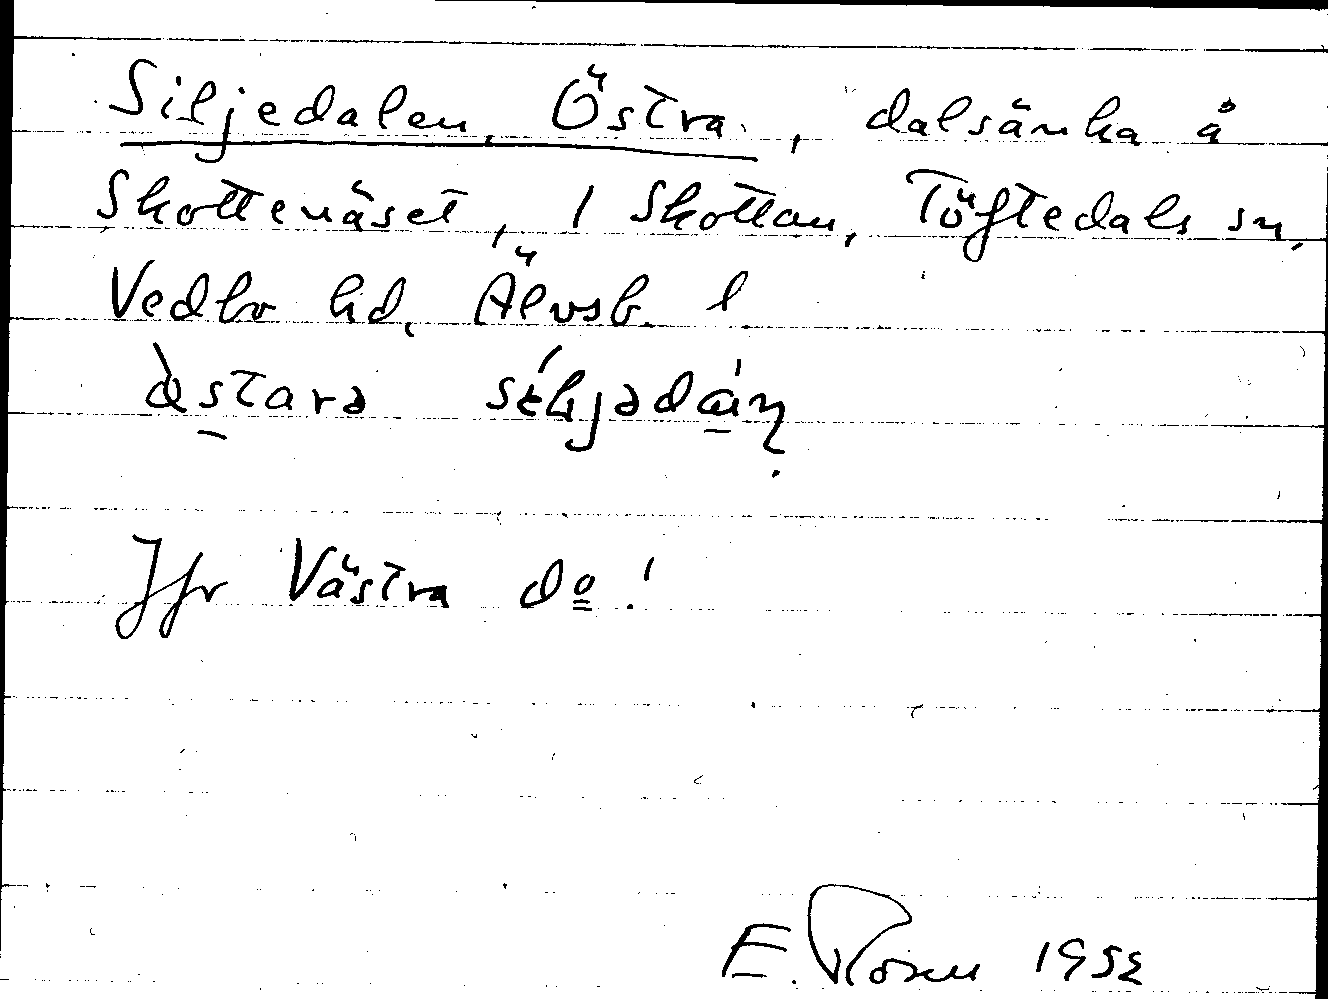 Siljedalen, Östra, dalsänka å
Skottenäset, 1 Skottan, Töftedals sn,
Vedbo hd, Älvsb. l
Jfr Västra dº!
E. Rosen 1952